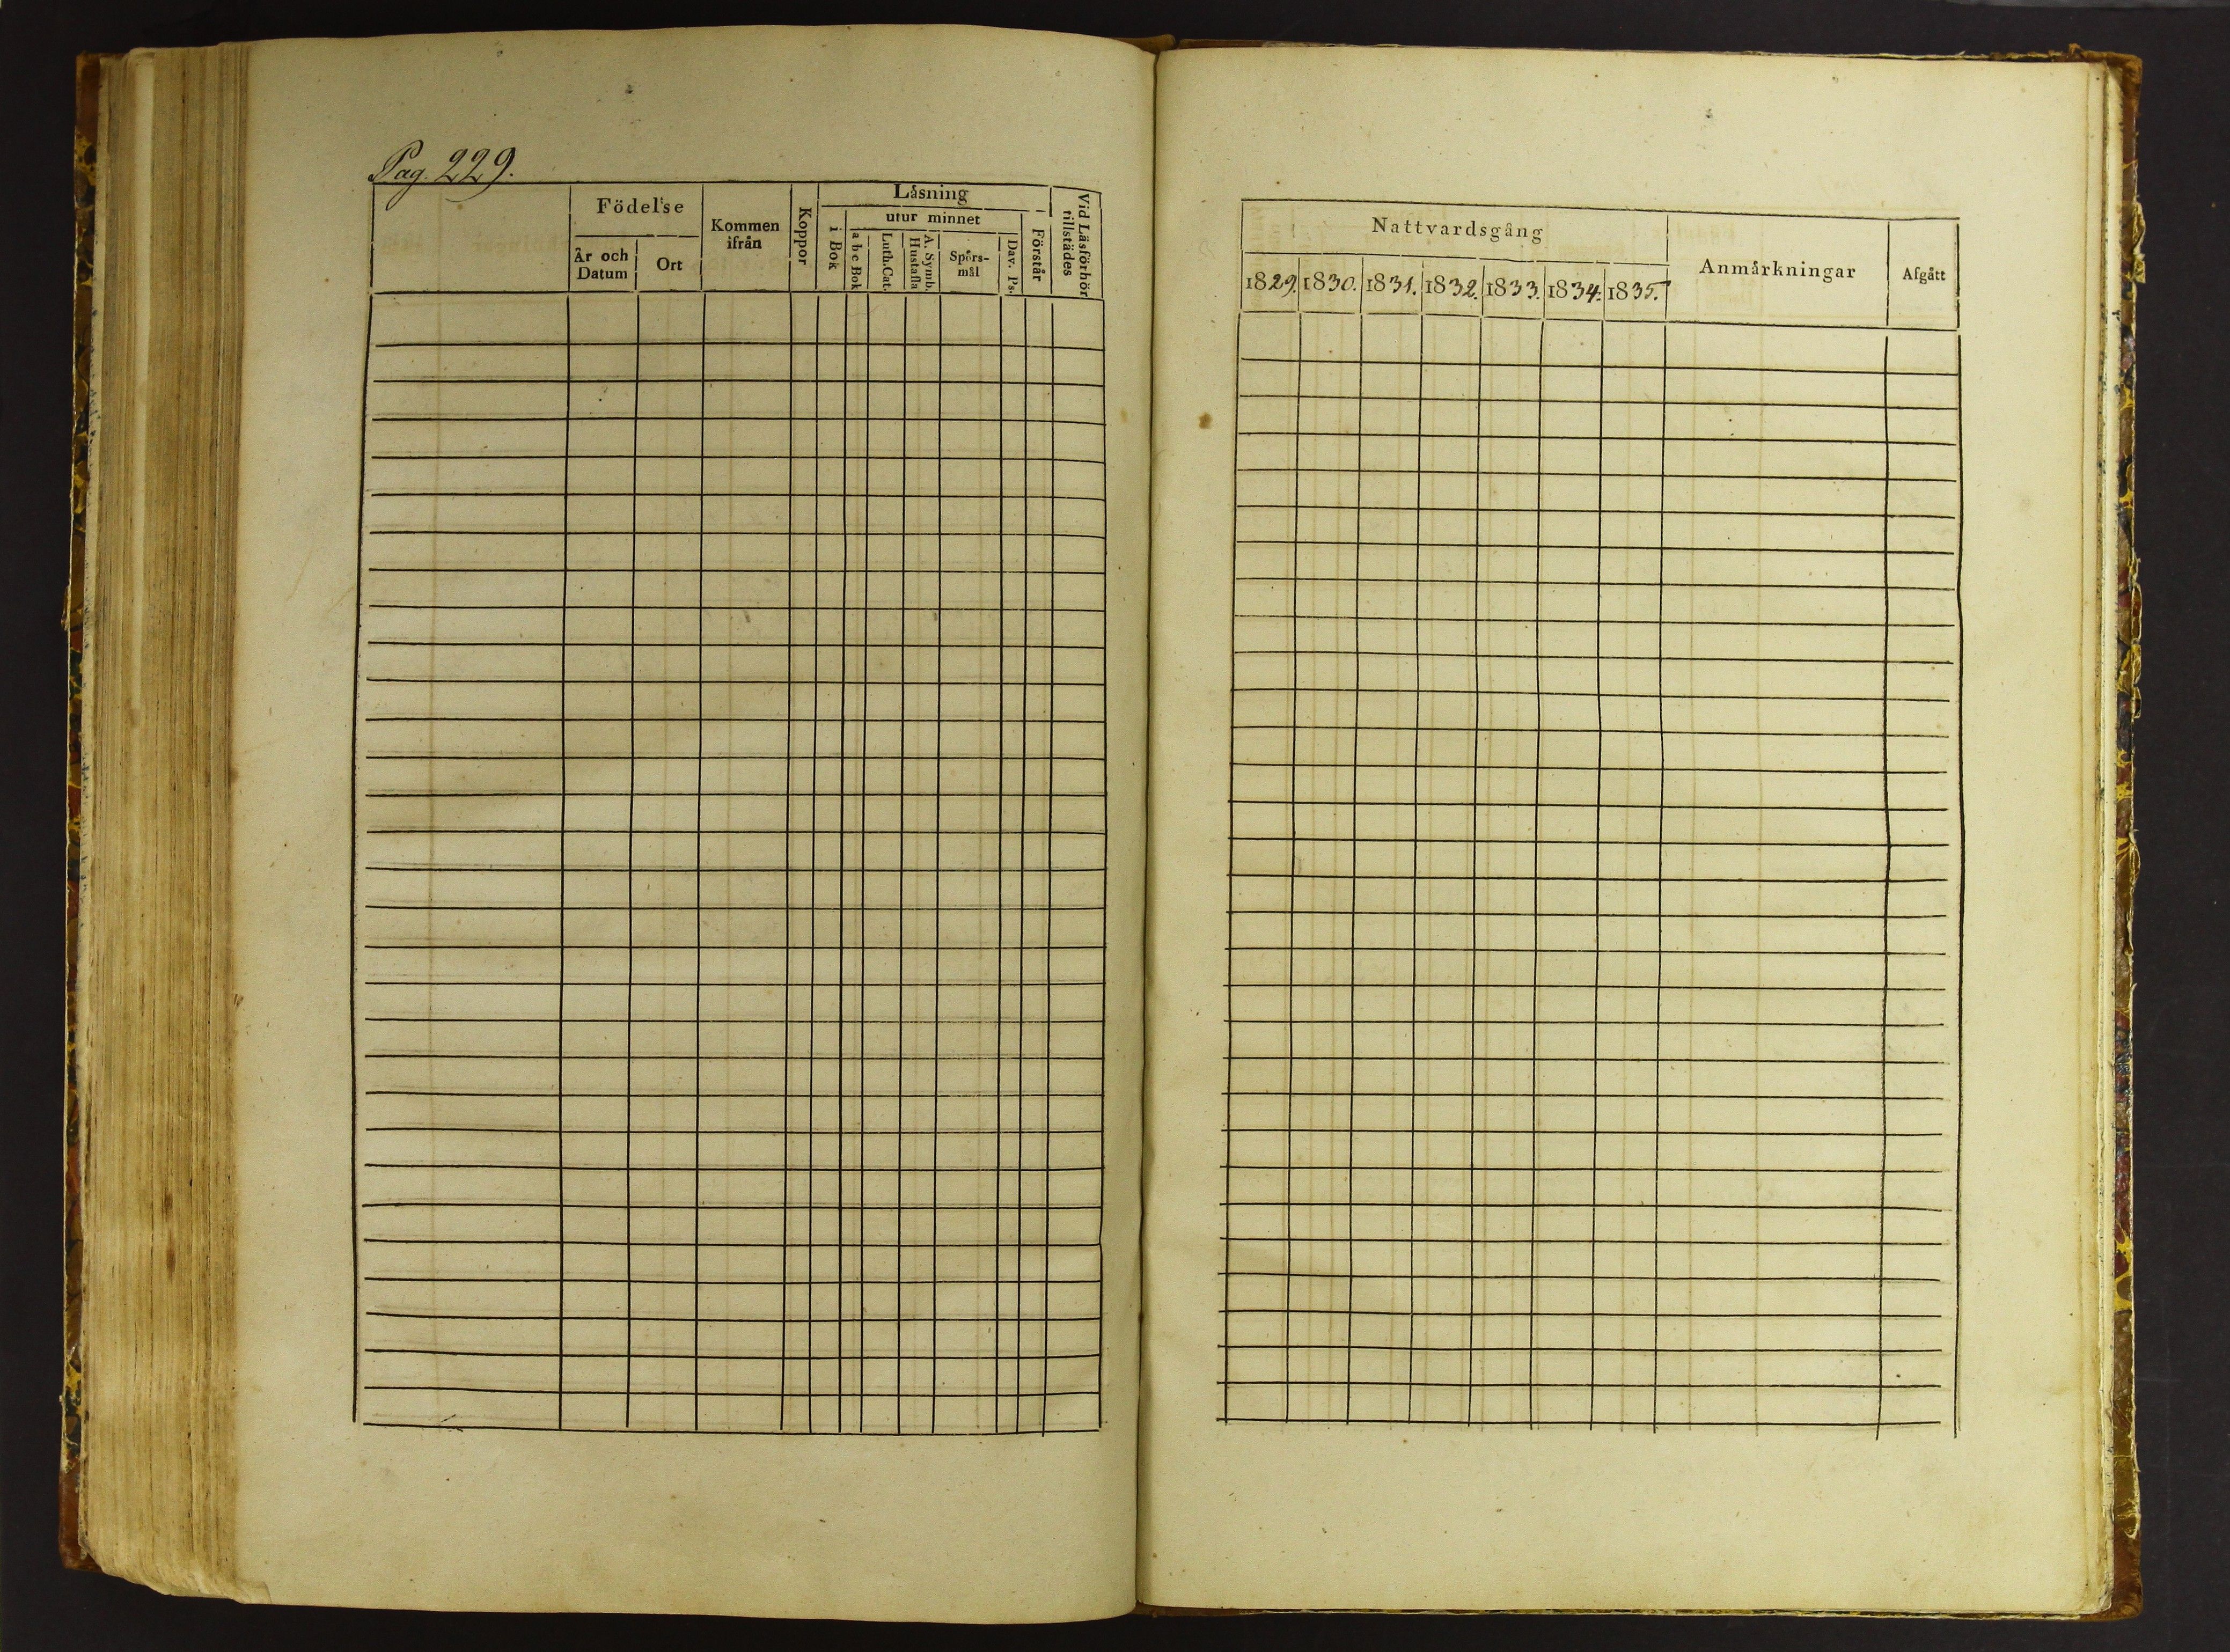 Pag. 229.
Födelse
År och
Datum
Ort
Kommen
ifrån
Koppor
Låsning
i Bok
utur minnet
a b c Bok
Luth.Cat.
A. Symb.
Hustafla
Spörs-
mål
Dav. Ps.
Förstår
Vid Läsförhör
tillstådes
Nattvardsgång
1829. 1830. 1831. 1832. 1833. 1834. 1835.
Anmårkningar
Afgått